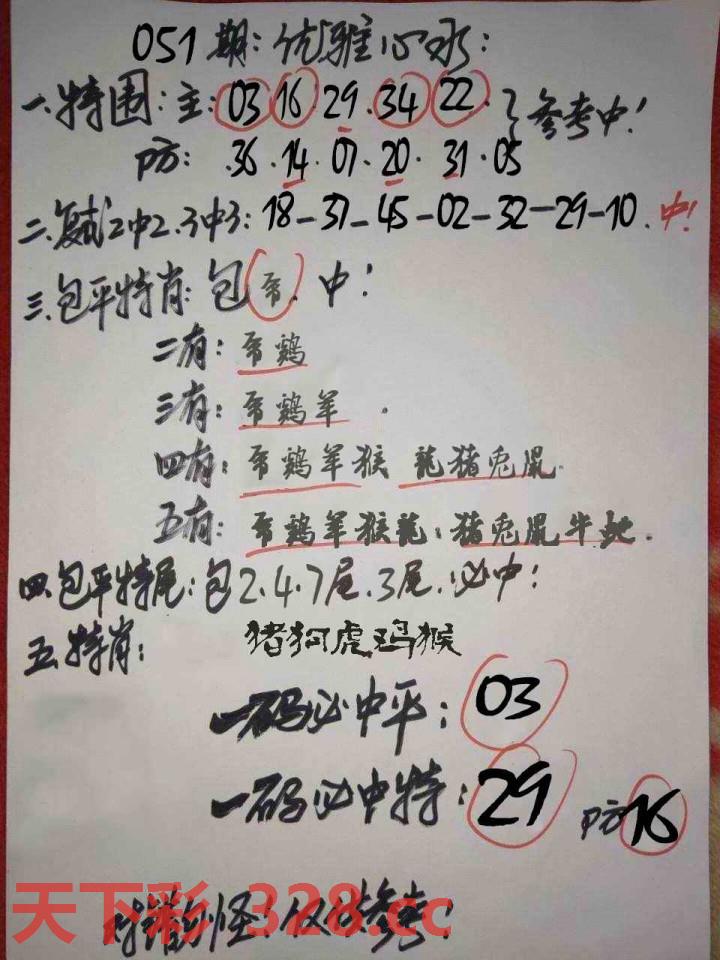 051期:优雅心水:
一.特围:主:03 16 29.34 22.
防:.36.14.07.20.31.05
}参考中!
二.复式2中2.3中3:18-37-45-02-32-29-10.中!
三.包平特肖:包帝.中!
二有:帝鸡
三有:帝鸡羊.
四有:帝鸡羊猴 龍猪兎鼠.
五有:帝鸡羊猴龍:猪兎鼠牛虵.
四.包平特尾:包2.4.7尾.3尾.必中!
五.特肖: 猪狗虎鸡猴
一码必中平:03
一码必中特:29 防16
料错勿怪!仅供参考!
天下彩 328.cc